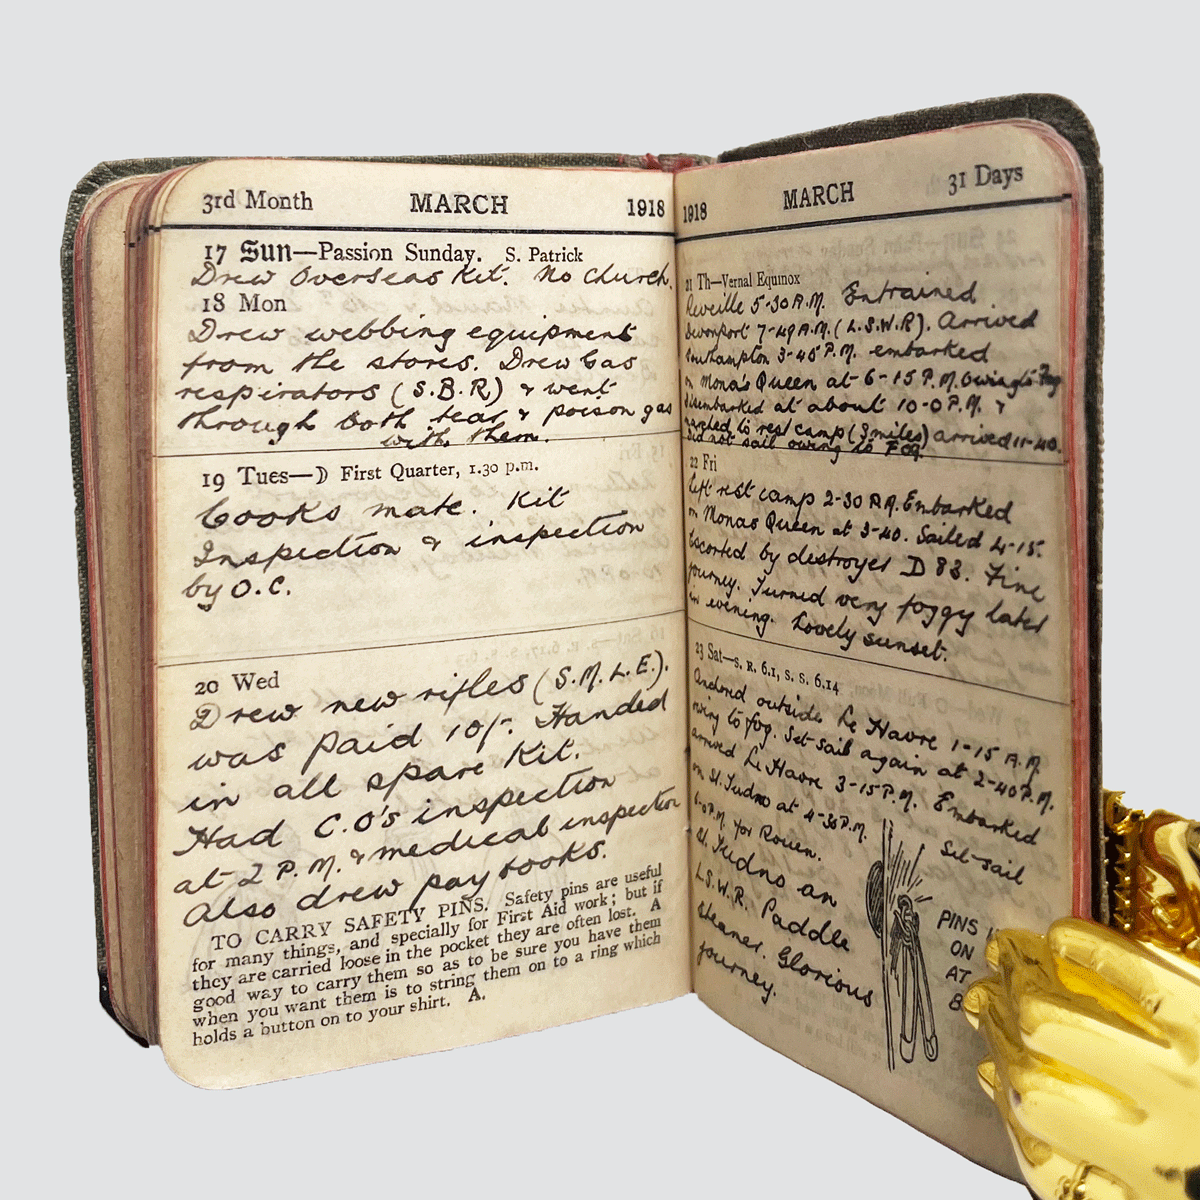 3rd Month MARCH 1918
17 Sun—Passion Sunday. S. Patrick
Drew Overseas Kit. No Church.
18 Mon
Drew webbing equipment
from the stores. Drew Gas
respirators (S.B.R.) & went
through both tear & poison gas
with them.
19 Tues—☽ First Quarter, 1.30 p.m.
Cooks mate. Kit
Inspection & inspection
by O.C.
20 Wed
Drew new rifles (S.M.L.E.).
was paid 10/-. Handed
in all spare Kit.
Had C.O's inspection
at 2 P.M. & medical inspection
Also drew pay books.
TO CARRY SAFETY PINS. Safety pins are useful
for many things, and specially for First Aid work; but if
they are carried loose in the pocket they are often lost. A
good way to carry them so as to be sure you have them
when you want them is to string them on to a ring which
holds a button on to your shirt. A.
1918 MARCH 31 Days
21 Th—Vernal Equinox
Reveille 5-30 A.M. Entrained
Devonport 7-49 A.M. (L.S.W.R). Arrived
Southampton 3-45 P.M. embarked
on Mona's Queen at 6-15 P.M. Owing to Fog
disembarked at about 10-0 P.M. &
marched to rest camp (3 miles) arrived 11-40.
Did not sail owing to Fog.
22 Fri
Left rest camp 2-30 P.M. Embarked
on Monas Queen at 3-40. Sailed 4-15.
Escorted by destroyer D 83. Fine
journey. Turned very foggy later
in evening. Lovely sunset.
23 Sat—S. R. 6.1, S. S. 6.14
Anchored outside Le Havre 1-15 A.M.
owing to fog. Set sail again at 2-40 P.M.
arrived Le Havre 3-15 P.M. Embarked
on St. Tudno at 4-30 P.M. Set-sail
6-0 P.M. for Rouen.
St. Tudno an
L.S.W.R. Paddle
steamer. Glorious
journey.
PINS
ON
AT
B